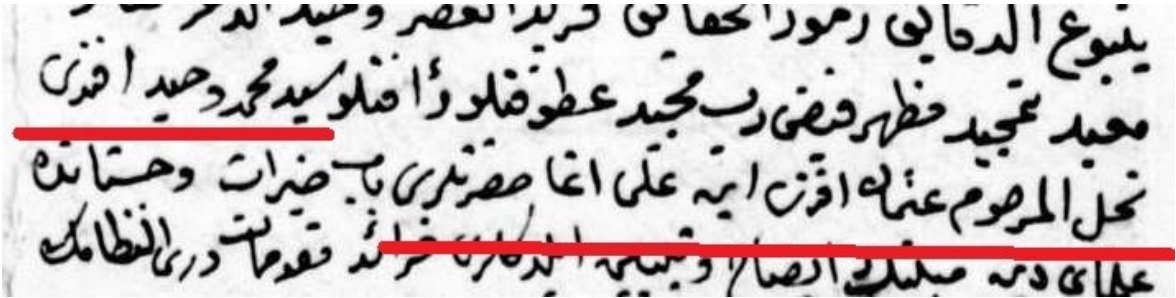 ينبوع الدقايق رموز الحقايق فريد العصر وحيد
معيد تمجيد مظهر فيض رب مجيد عطوفتلو رأفتلو سيد محمد وحيد افندى
نجل المرحوم عثمان افندى ابن على اغا حضرتلرى باب خيرات وحسناتده
علماى دين فرائد مقدمات درى النظامك